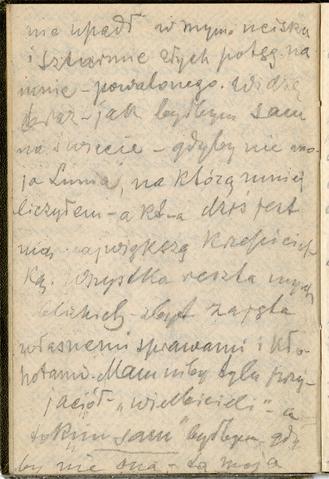 nie upadł w mym ucisku
i szturmie złych potęg na
mnie - powalonego. Widzę
teraz - jak byłbym sam
na świecie - gdyby nie mo-
ja Lunia, na którą mniej
liczyłem - a kt-a dziś jest
największą
ką. Wszystka reszta mych
bliskich - zbyt zajęta
własnemi sprawami i kło-
potami. Mam niby tylu przy-
jaciół - „wielbicieli" - a
to „sam" byłbym gdy-
by nie ona - ta moja